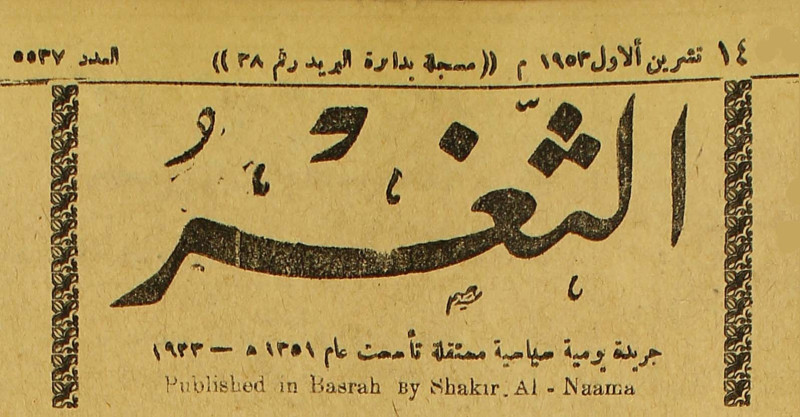 ١٤ تشرين الاول ١٩٥٣ م ((مسجلة بدائرة البريد رقم ٣٨)) العدد ٥٥٣٧
الثَّغْرُ
جريدة يومية سياسية مستقلة تأسست عام ١٣٥١ ه — ١٩٣٣
Published in Basrah By Shakir. Al - Naama